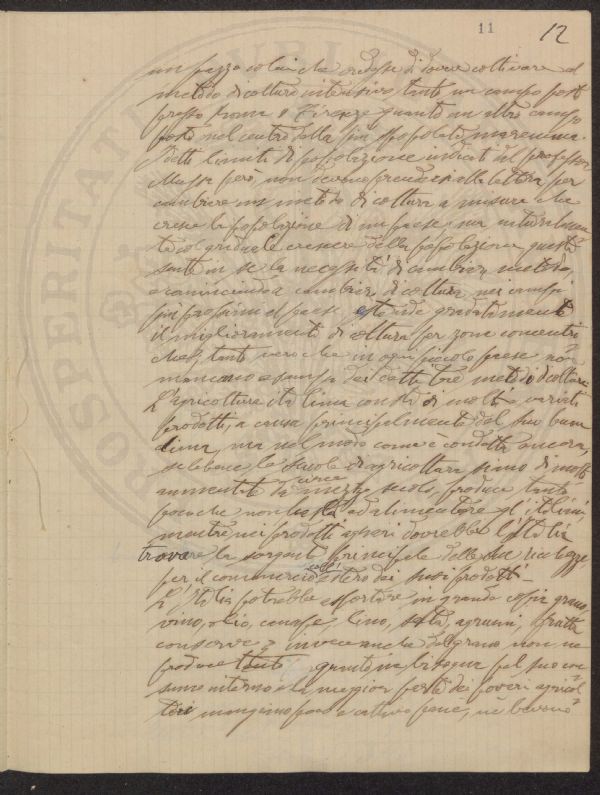 11 12
un pazzo colui che credesse di dover coltivare col
metodo di coltura intensivo tanto un campo posto
presso Roma o Firenze quanto un altro campo
posto nel centro della più spopolata maremma.
I detti limiti di popolazione indicati dal professor
Mussa però, non devono prendersi alla lettera per
cambiare un metodo di coltura a misura che
cresce la popolazione di un paese, ma naturalmen
te col graduale crescere della popolazione questa
sente in se la necessità di cambiar metodo,
e cominciando a cambiar di coltura nei campi
più prossimi al paese estende gradatamente
il miglioramento di coltura per zone concentri
che, tanto vero che in ogni piccolo paese non
mancano esempi dei detti tre metodi di coltura
L'agricoltura italiana consta di molti e variati
prodotti, a causa principalmente del suo buon
clima, ma nel modo come è condotta ancora,
sebbene le scuole di agricoltura siano di molto
aumentate da circa mezzo secolo, produce tanto
poco che non basta ad alimentare gl'Italiani,
mentre nei prodotti agrari dovrebbe l'Italia
trovare la sorgente principale delle sue ricchezze
per il commercio coll'estero dei suoi prodotti –
L'Italia potrebbe esportare in grande copia grano,
vino, olio, canape, lino, seta, agrumi, frutta
conserve, invece anche del grano non ne
produce tanto quanto ne bisogna pel suo con
sumo interno e la maggior parte dei poveri agricol
tori mangiano poco e cattivo pane, nè bevono